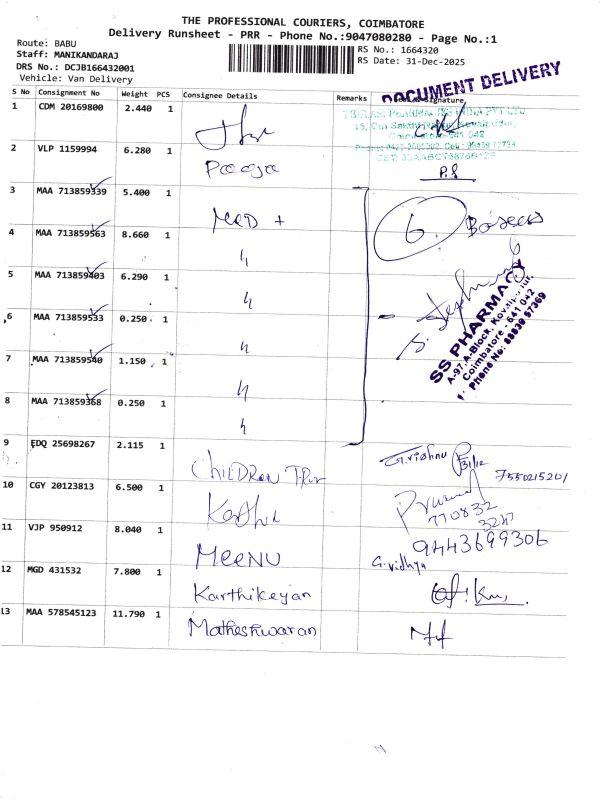 THE PROFESSIONAL COURIERS, COIMBATORE
Delivery Runsheet - PRR - Phone No.:9047080280 - Page No.:1
Route: BABU
Staff: MANIKANDARAJ
DRS No.: DCJB166432001
Vehicle: Van Delivery
RS No.: 1664320
RS Date: 31-Dec-2025
DOCUMENT DELIVERY
S No Consignment No Weight PCS Consignee Details Remarks Signature
1 CDM 20169800 2.440 1
2 VLP 1159994 6.280 1 Pooja P.S
3 MAA 713859339 5.400 1 MED +
4 MAA 713859563 8.660 1 〃
5 MAA 713859403 6.290 1 〃
6 MAA 713859533 0.250 1 〃
7 MAA 713859540 1.150 1 〃
8 MAA 713859368 0.250 1 〃
6 Boxes
SS PHARMACY
A-97, A-Block, Kovaipudur,
Coimbatore - 641 042
Phone No: 89039 57369
9 EDQ 25698267 2.115 1 CHILDREN G.vishnu 7550215201
10 CGY 20123813 6.500 1 770832
3247
11 VJP 950912 8.040 1 MEENU G.vidhya 9443699306
12 MGD 431532 7.800 1 Karthikeyan
13 MAA 578545123 11.790 1 Matheshwaran